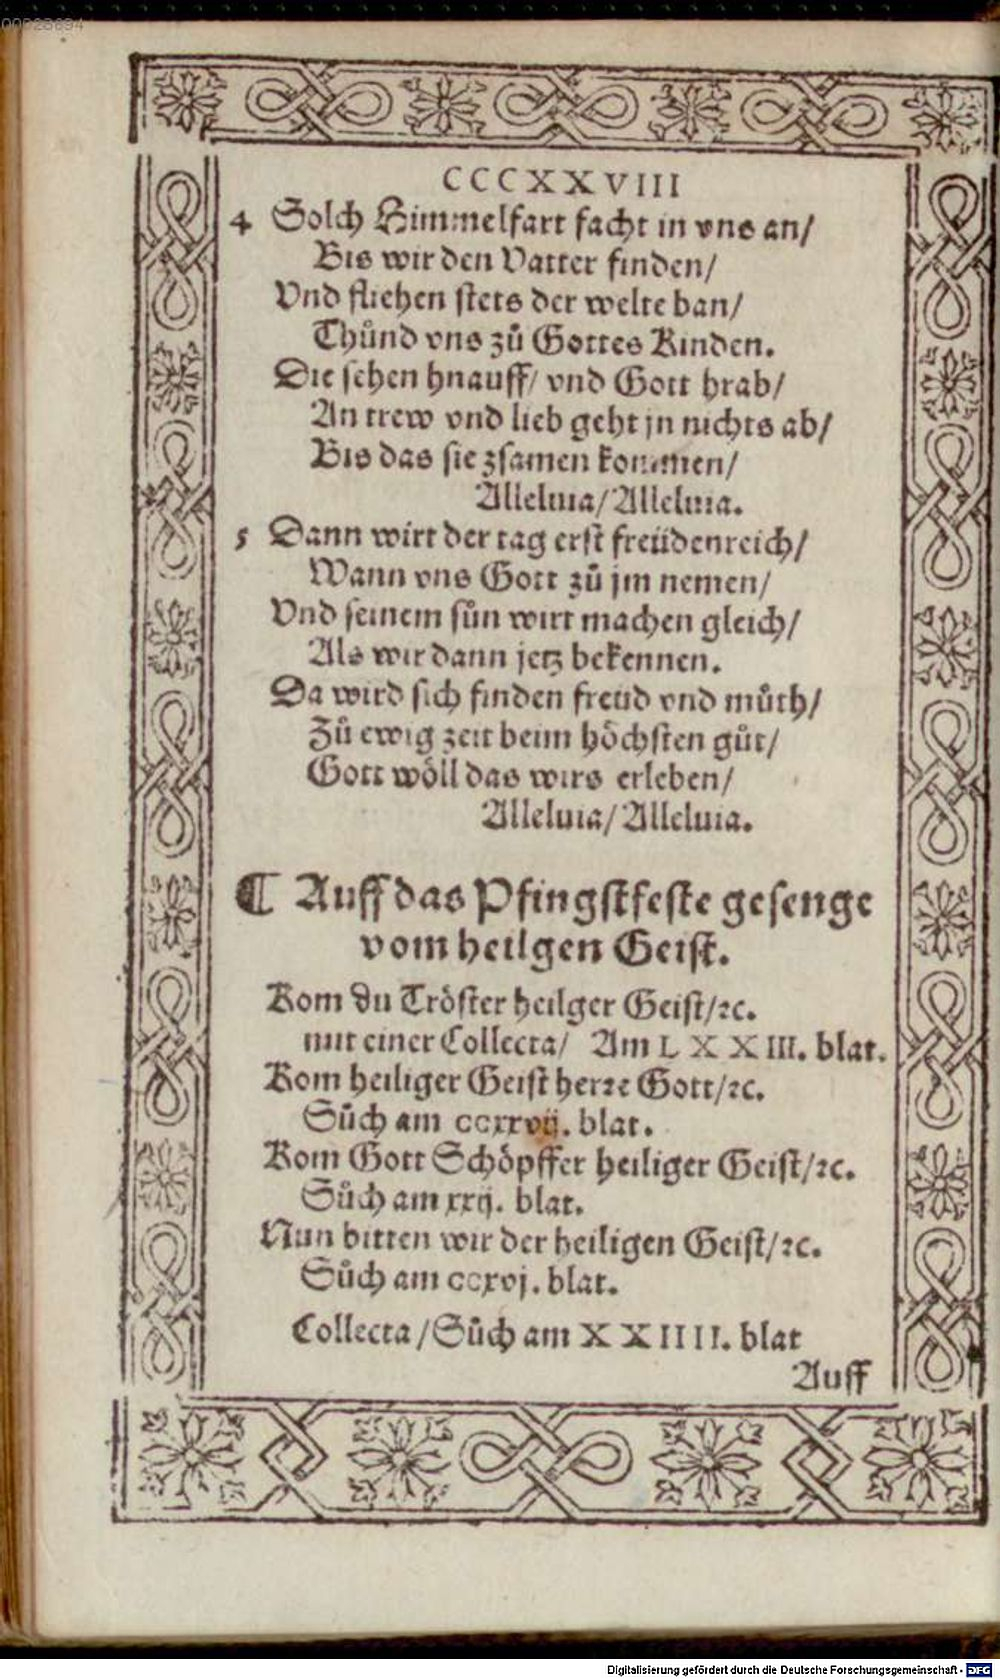 00023694
CCCXXVIII
4 Solch Himmelfart facht in vns an/
Bis wir den Vatter finden/
Vnd fliehen stets der welte ban/
Thůnd vns zů Gottes Kinden.
Die sehen hnauff/ vnd Gott hrab/
An trew vnd lieb geht jn nichts ab/
Bis das sie zsamen kommen/
Alleluia/ Alleluia.
5 Dann wirt der tag erst freüdenreich/
Wann vns Gott zů jm nemen/
Vnd seinem sůn wirt machen gleich/
Als wir dann jetz bekennen.
Da wird sich finden freud vnd můth/
Zů ewig zeit beim höchsten gůt/
Gott wöll das wirs erleben/
Alleluia/ Alleluia.
¶ Auff das Pfingstfeste gesenge
vom heilgen Geist.
Kom du Tröster heilger Geist/ꝛc.
mit einer Collecta/ Am LXXIII. blat.
Kom heiliger Geist herꝛe Gott/ꝛc.
Sůch am ccxxvij. blat.
Kom Gott Schöpffer heiliger Geist/ꝛc.
Sůch am xxij. blat.
Nun bitten wir der heiligen Geist/ꝛc.
Sůch am ccxvj. blat.
Collecta/ Sůch am XXIIII. blat
Auff
Digitalisierung gefördert durch die Deutsche Forschungsgemeinschaft - DFG